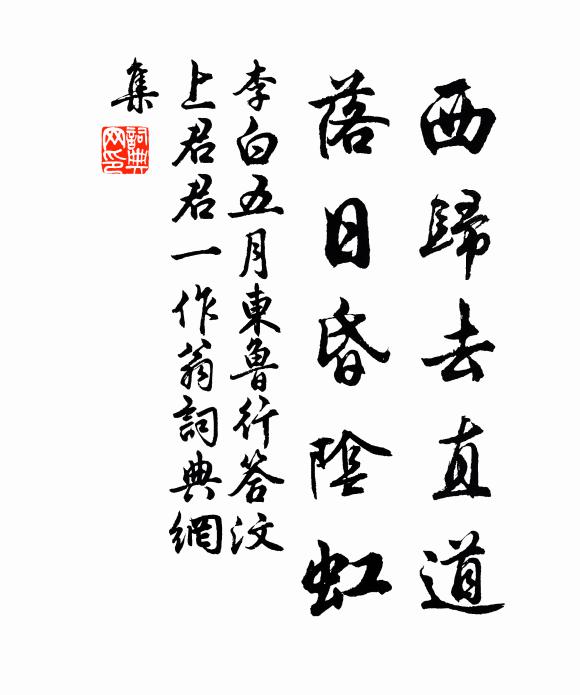 西歸去直道
落日昏陰虹
李白五月東魯行答汶
上君君一作翁詞典網
集
詞典網印